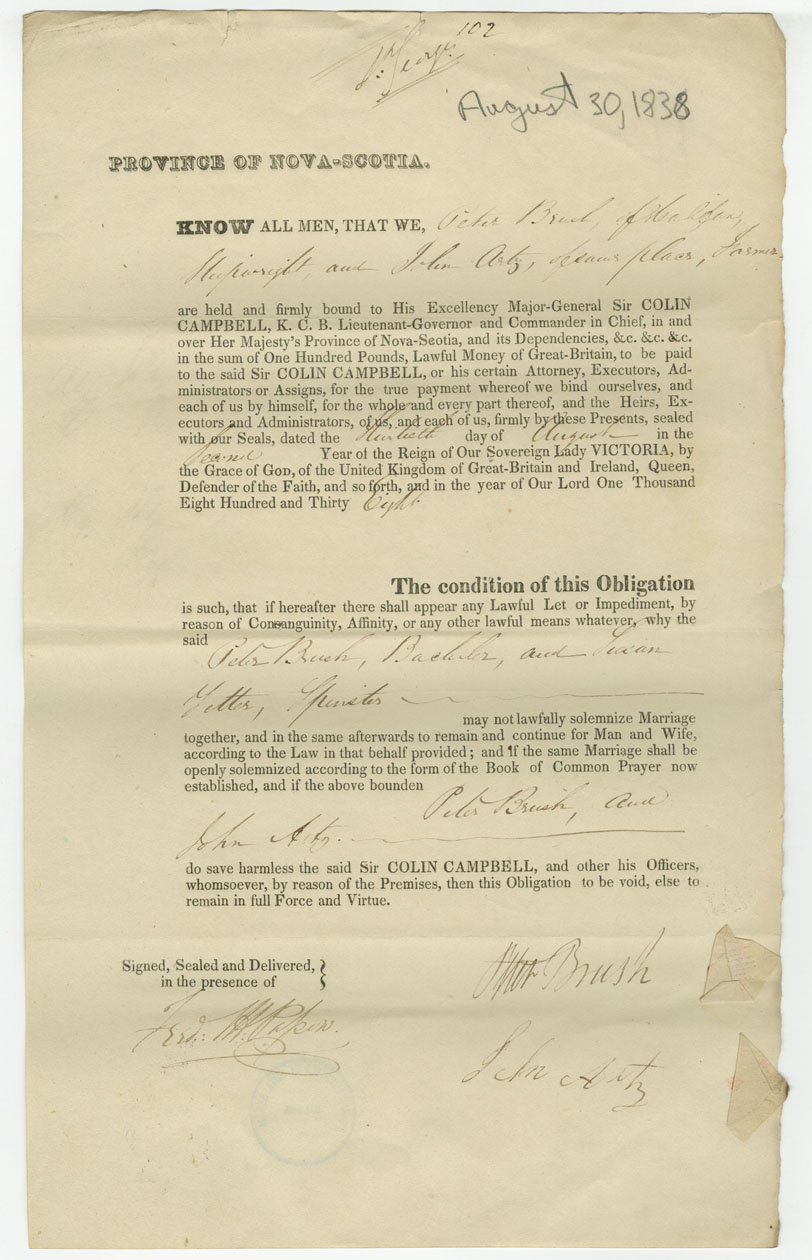 102
St. George
August 30, 1838
PROVINCE OF NOVA-SCOTIA.
KNOW ALL MEN, THAT WE, Peter Brush, of Halifax,
Shipwright, and John Artz, of same place, Farmer
are held and firmly bound to His Excellency Major-General Sir COLIN
CAMPBELL, K. C. B. Lieutenant-Governor and Commander in Chief, in and
over Her Majesty's Province of Nova-Scotia, and its Dependencies, &c. &c. &c.
in the sum of One Hundred Pounds, Lawful Money of Great-Britain, to be paid
to the said Sir COLIN CAMPBELL, or his certain Attorney, Executors, Ad-
ministrators or Assigns, for the true payment whereof we bind ourselves, and
each of us by himself, for the whole and every part thereof, and the Heirs, Ex-
ecutors and Administrators, of us, and each of us, firmly by these Presents, sealed
with our Seals, dated the thirtieth day of August in the
Second Year of the Reign of Our Sovereign Lady VICTORIA, by
the Grace of GOD, of the United Kingdom of Great-Britain and Ireland, Queen,
Defender of the Faith, and so forth, and in the year of Our Lord One Thousand
Eight Hundred and Thirty Eight.
The condition of this Obligation
is such, that if hereafter there shall appear any Lawful Let or Impediment, by
reason of Consanguinity, Affinity, or any other lawful means whatever, why the
said Peter Brush, Bachelor, and Susan
Spinster
may not lawfully solemnize Marriage
together, and in the same afterwards to remain and continue for Man and Wife,
according to the Law in that behalf provided; and if the same Marriage shall be
openly solemnized according to the form of the Book of Common Prayer now
established, and if the above bounden Peter Brush, and
John Artz.
do save harmless the said Sir COLIN CAMPBELL, and other his Officers,
whomsoever, by reason of the Premises, then this Obligation to be void, else to
remain in full Force and Virtue.
Signed, Sealed and Delivered,
in the presence of
Peter Brush
John Artz